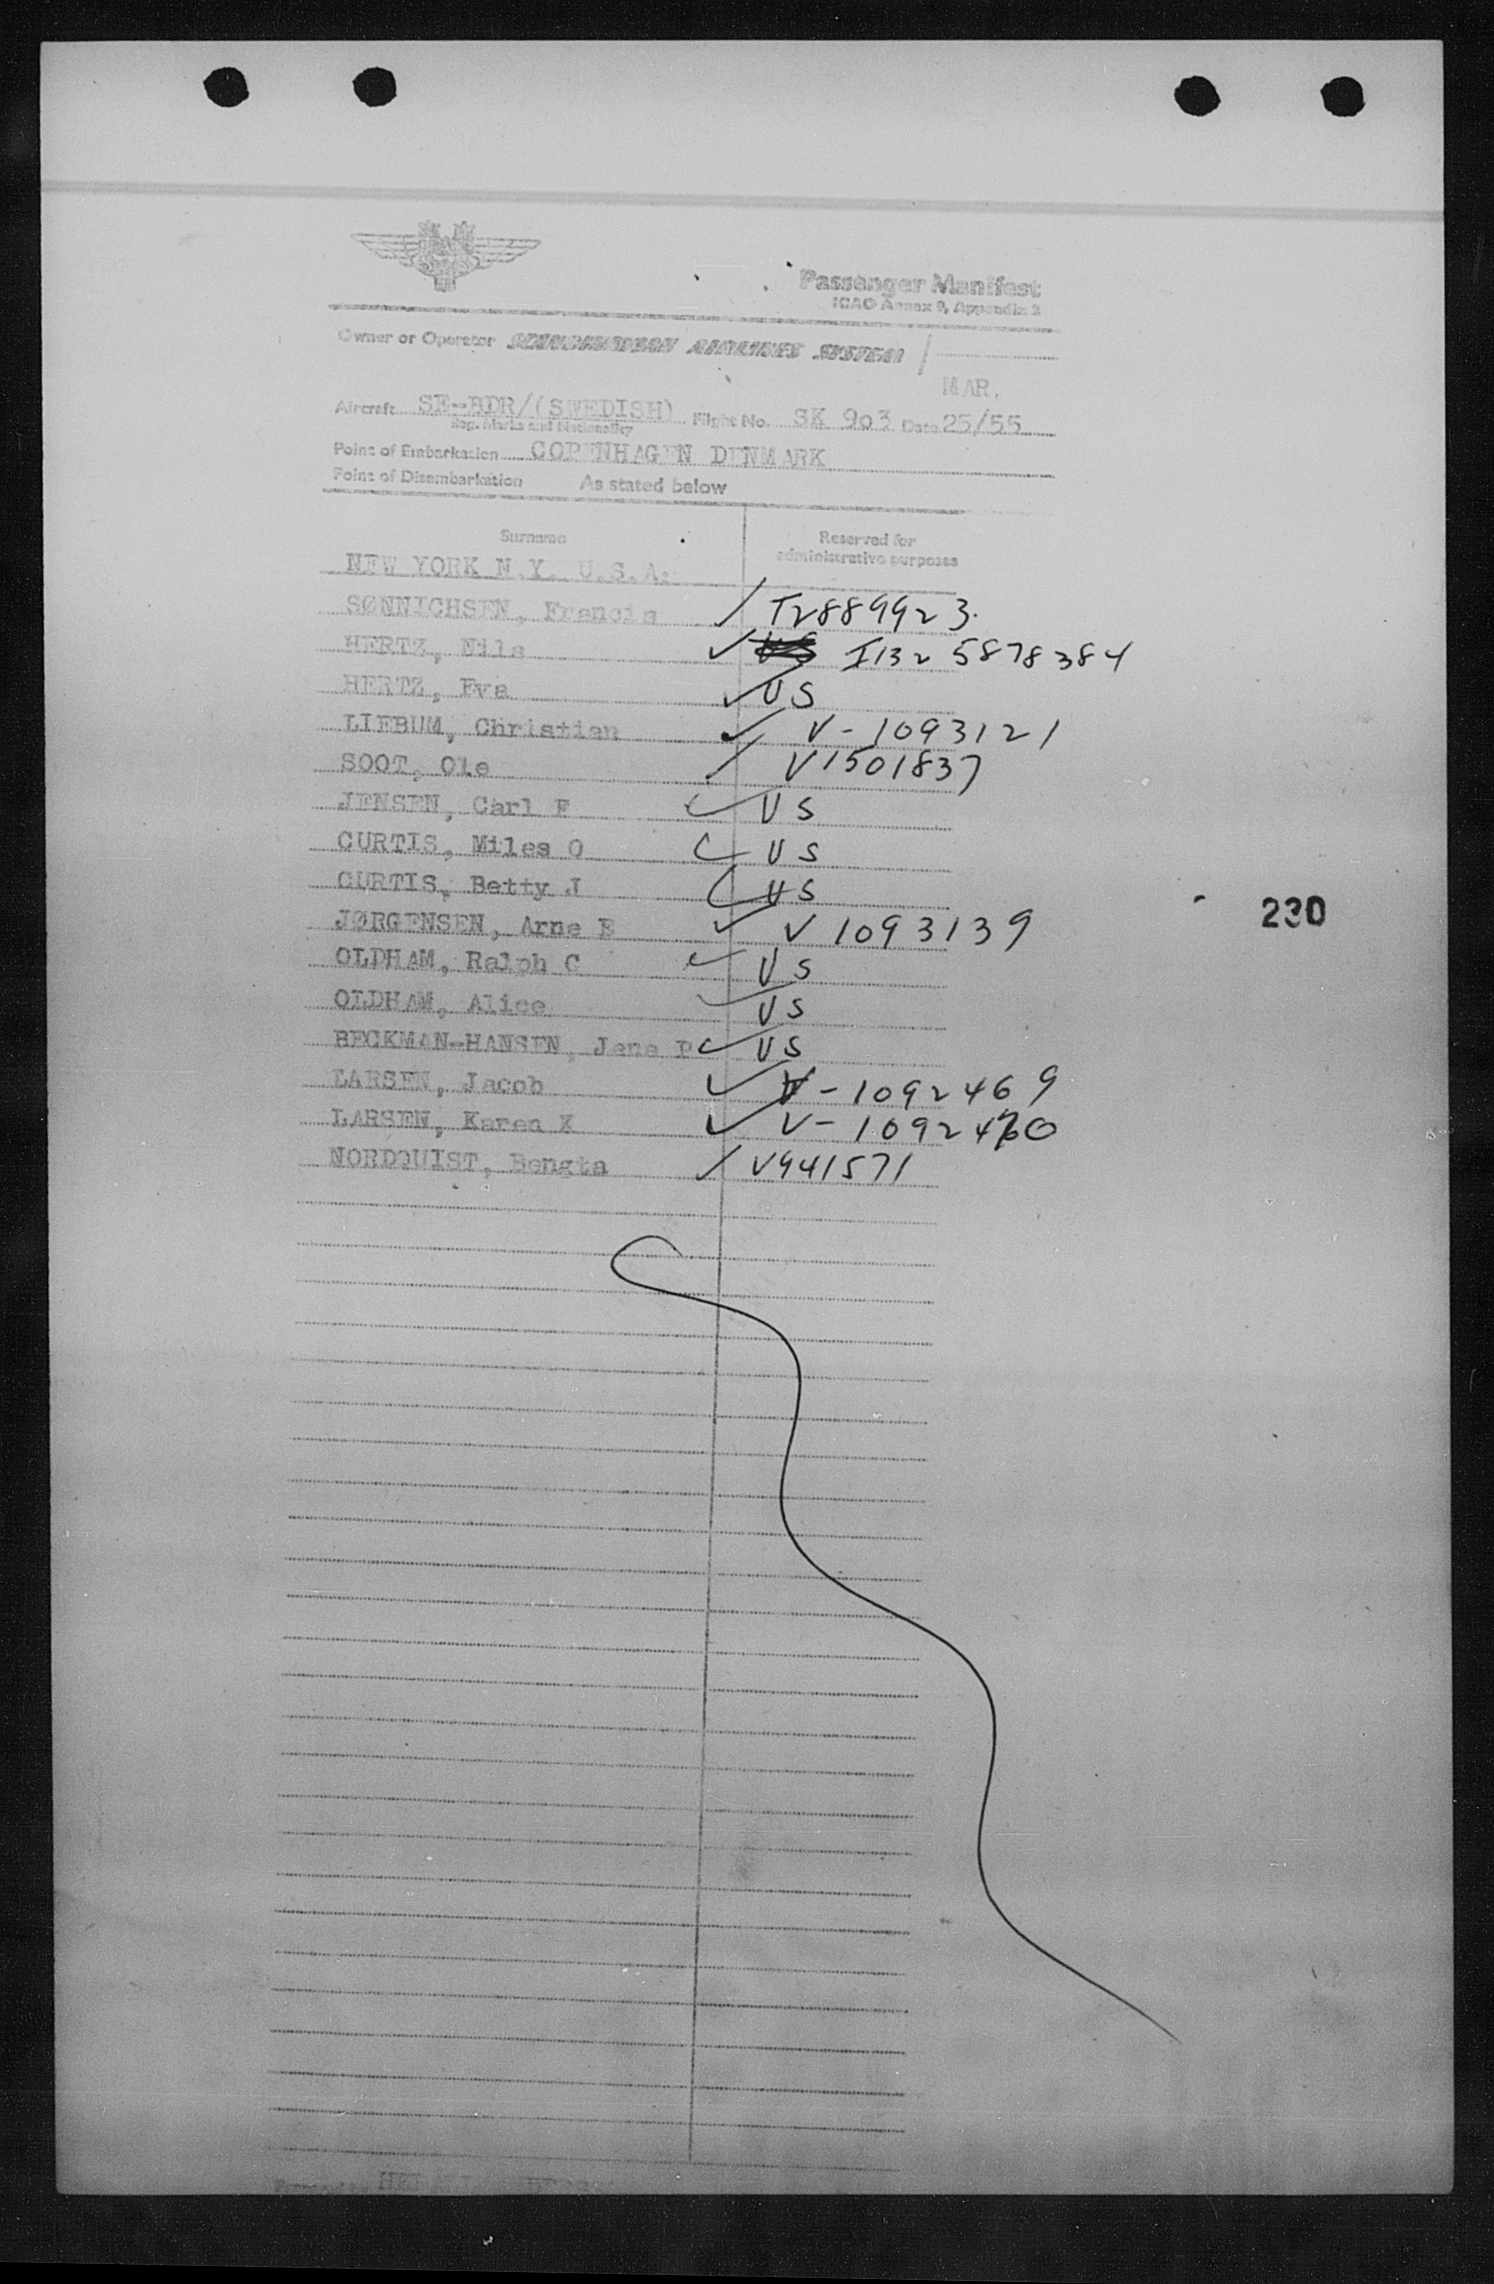 SAS
Passenger Manifest
ICAO Annex 9, Appendix 2
Owner or Operator SCANDINAVIAN AIRLINES SYSTEM
MAR.
Aircraft SE-BDR/(SWEDISH) Flight No. SK 903 Date 25/55
Reg. Marks and Nationality
Point of Embarkation COPENHAGEN DENMARK
Point of Disembarkation As stated below
Surname Reserved for administrative purposes
NEW YORK N.Y. U.S.A.
SØNNICHSEN, Francis T2889923.
HERTZ, Nils US I132 5878384
HERTZ, Eva US
LIEBUM, Christian V-1093121
SOOT, Ole V1501837
JENSEN, Carl F US
CURTIS, Miles O US
CURTIS, Betty J US
JØRGENSEN, Arne E V 1093139
230
OLDHAM, Ralph C US
OLDHAM, Alice US
BECKMAN-HANSEN, Jens P US
LARSEN, Jacob V-1092469
LARSEN, Karen K V-1092470
NORDQUIST, Bengta V941571